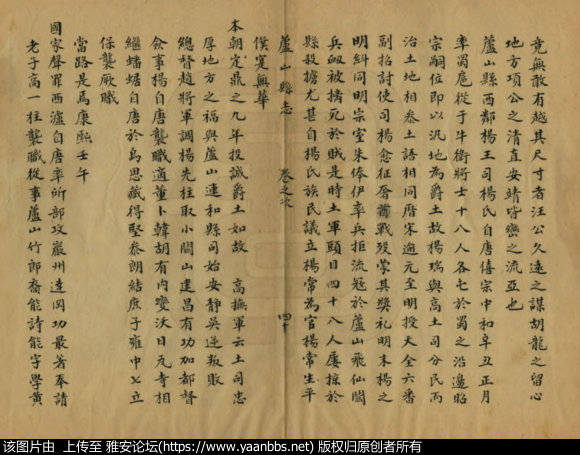 竟無敢有越其尺寸者汪公久遠之謀胡龍之留心
地方項公之清直安靖皆蠻之流亞也
蘆山縣西鄰楊王司楊氏自唐僖宗中和辛丑正月
率蜀扈從于牛衛將士十八人各屯於蜀之沿邊昭
宗嗣位即以汎地為爵土故楊瑞與高土司分民而
治土地相參土語相同曆宋迤元至明授天全六番
副招討使司楊愈征 戰歿蒙其獎礼明末楊之
明糾同明宗室朱俸伊率兵拒流冦於蘆山飛仙關
兵衂被擒死於賊是時土軍頭目四十八人屢掠於
縣殺擄尤甚自楊氏族民議立楊常為官楊常生平
蘆山縣志
卷之次
四十
僕寔無華
本朝定鼎之九年投誠爵土如故 高撫軍云土司忠
厚地方之福與蘆山連和縣司始安靜吳逆叛敗
總督趙將軍調楊先柱取小關山建昌有功加都督
僉事楊自唐襲職適董卜韓胡有內變沃日瓦寺相
繼蟠踞自唐於烏思藏得堅參朗結庶子雍中七立
保襲厥職
當路是焉康熙壬午
國家聲罪西瀘自唐率所部攻巖州達岡功最著奉請
老子高一柱襲職從事蘆山竹郎裔能詩能字學黃
该图片由 上传至 雅安论坛(https://www.yaanbbs.net) 版权归原创者所有